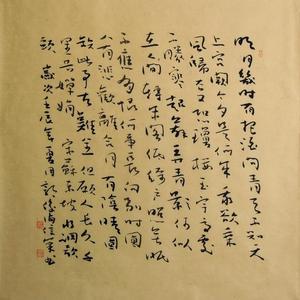 明月幾時有把酒問青天不知天
上宮闕今夕是何年我欲乘
風歸去又恐瓊樓玉宇高處
不勝寒起舞弄清影何似
在人間轉朱閣低綺戶照無眠
不應有恨何事長向別時圓
人有悲歡離合月有陰晴圓
缺此事古難全但願人長久千
里共嬋娟 宋蘇東坡水調歌
頭 歲次壬辰年夏月 書